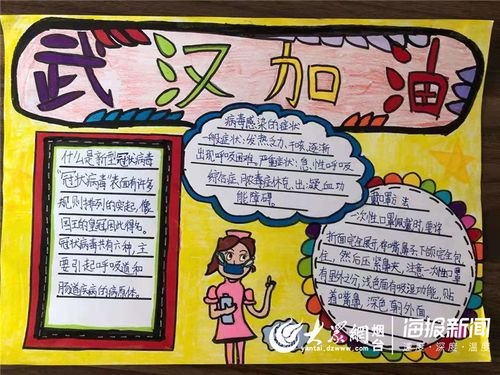 武汉加油
什么是新型冠状病毒
"冠状病毒"表面有许多
规则排列的突起,像
国王的皇冠因此得名。
冠状病毒共有六种,主
要引起呼吸道和
肠道疾病的病原体。
病毒感染的症状
一般症状:发热、乏力、干咳、逐渐
出现呼吸困难,严重症状:急性呼吸
综合征、脓毒症休克、出、凝血功
能障碍
戴口罩方法
一次性口罩佩戴时,要将
折面完全展开,将嘴、鼻、下颌完全包
住,然后压紧鼻夹,注意一次性口罩
有里外之分,浅色面有吸湿功能,贴
着嘴鼻,深色朝外面。
大众网烟台
yantai.dzwww.com
海报新闻
速度·深度·温度